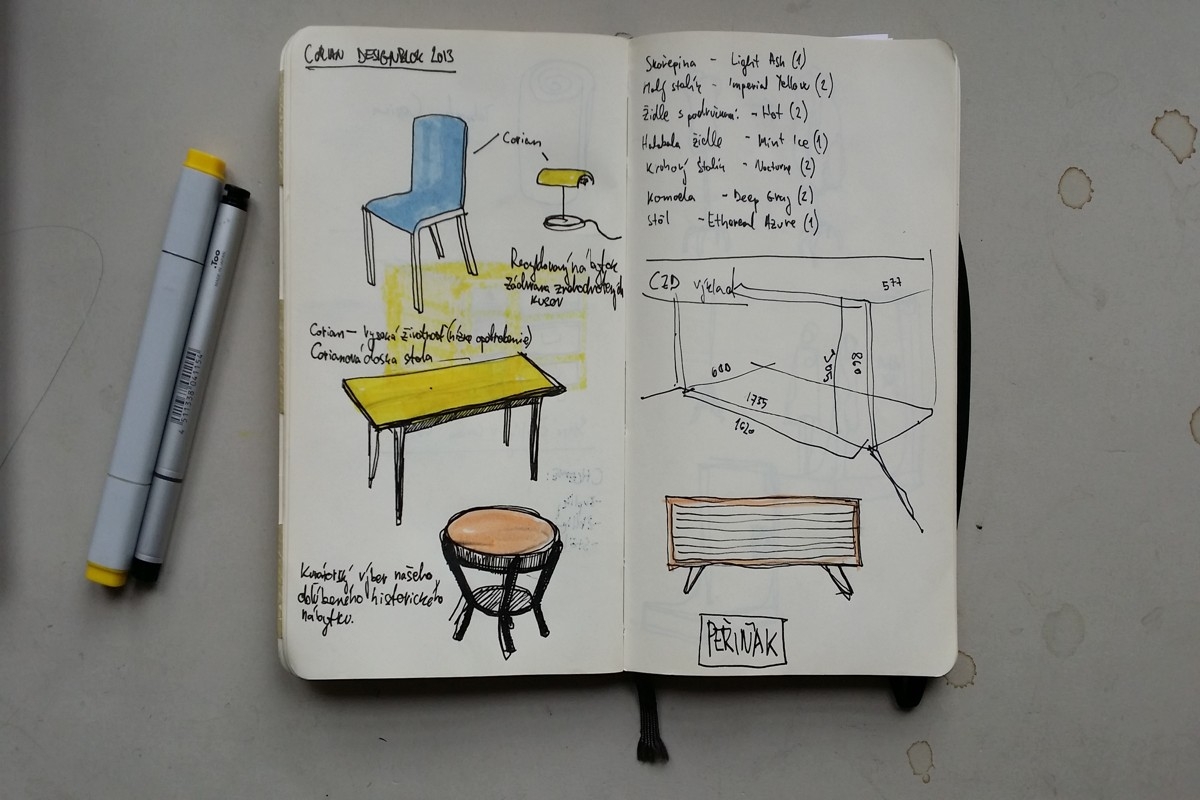 CORIAN DESIGNBLOK 2013
Corian
Recyklovaný nábytok
záchrana znehodnotených
kusov
Corian – vysoká životnosť (nízke opotrebenie)
Corianová doska stola
Kurátorský výber našeho
obľúbeného historického
nábytku.
Skořepina – Light Ash (1)
Malý stolík – Imperial Yellow (2)
Židle s područkami – Hot (2)
Halabala židle – Mint Ice (1)
Kruhový stolík – Nocturne (2)
Komoda – Deep Gray (2)
Stôl – Ethereal Azure (1)
CZD výklad
577
600
1735
1620
860
PEŘIŇÁK
.Too
4 511338 043154